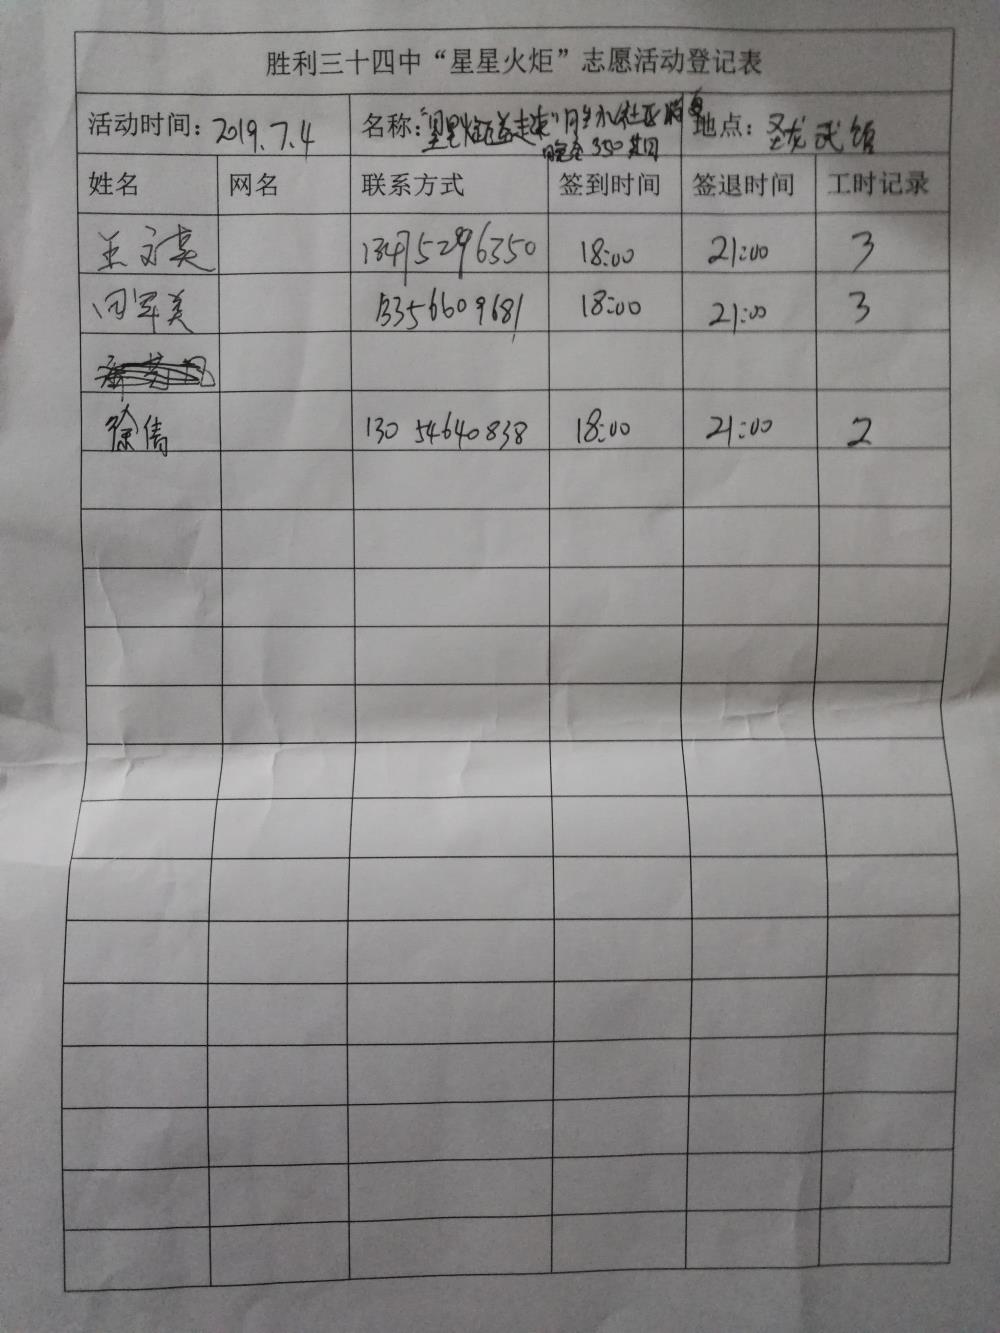 胜利三十四中“星星火炬”志愿活动登记表
活动时间：2019.7.4 名称： 地点：圣龙武馆
姓名 网名 联系方式 签到时间 签退时间 工时记录
王文英 13475296350 18:00 21:00 3
军美 13356609681 18:00 21:00 3
徐倩 13054640838 18:00 21:00 2